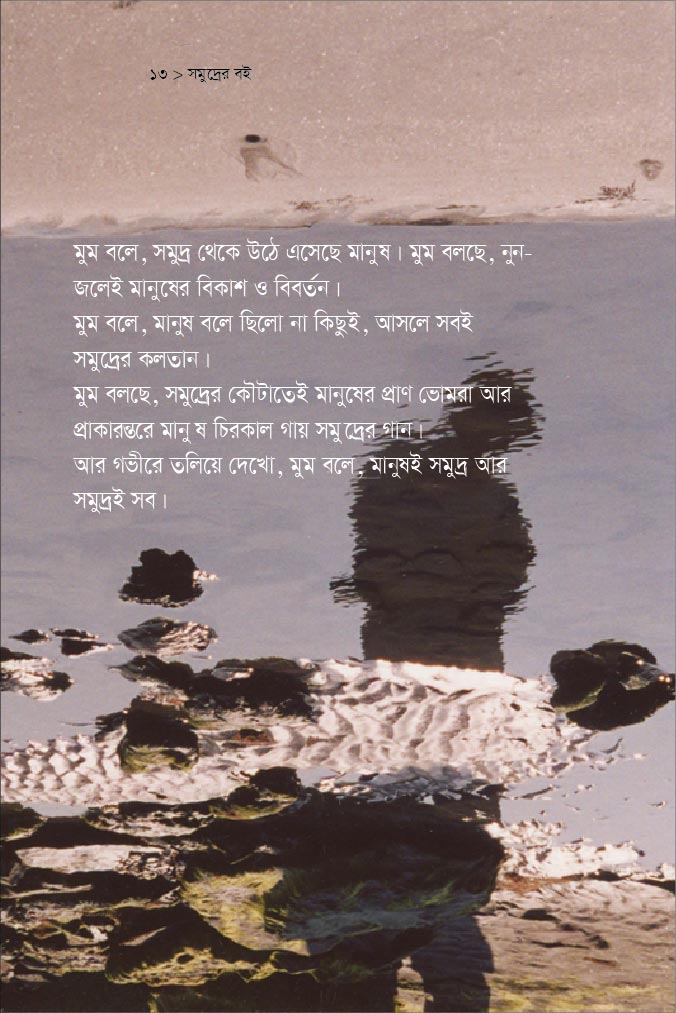 ১৩ > সমুদ্রের বই
মুম বলে, সমুদ্র থেকে উঠে এসেছে মানুষ। মুম বলছে, নুন-
জলেই মানুষের বিকাশ ও বিবর্তন।
মুম বলে, মানুষ বলে ছিলো না কিছুই, আসলে সবই
সমুদ্রের কলতান।
মুম বলছে, সমুদ্রের কৌটাতেই মানুষের প্রাণ ভোমরা আর
প্রাকারন্তরে মানুষ চিরকাল গায় সমুদ্রের গান।
আর গভীরে তলিয়ে দেখো, মুম বলে, মানুষই সমুদ্র আর
সমুদ্রই সব।